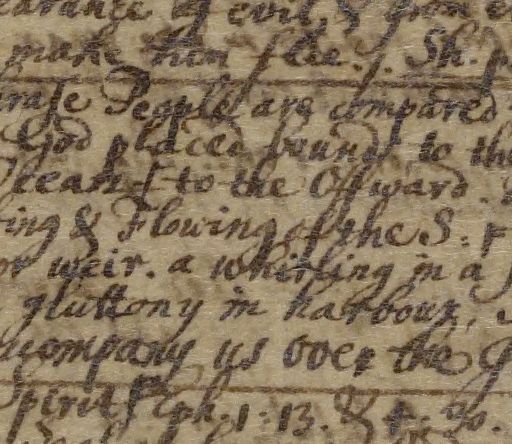 earance of evil, & from
make him
People are compared
God placed bound to the
Ocean & to the Offward.
ing & Flowing of the S:
or weir. a whirling in a
gluttony in harbour,
accompany us over the
Spirit Eph. 1: 13. & 4: 30.